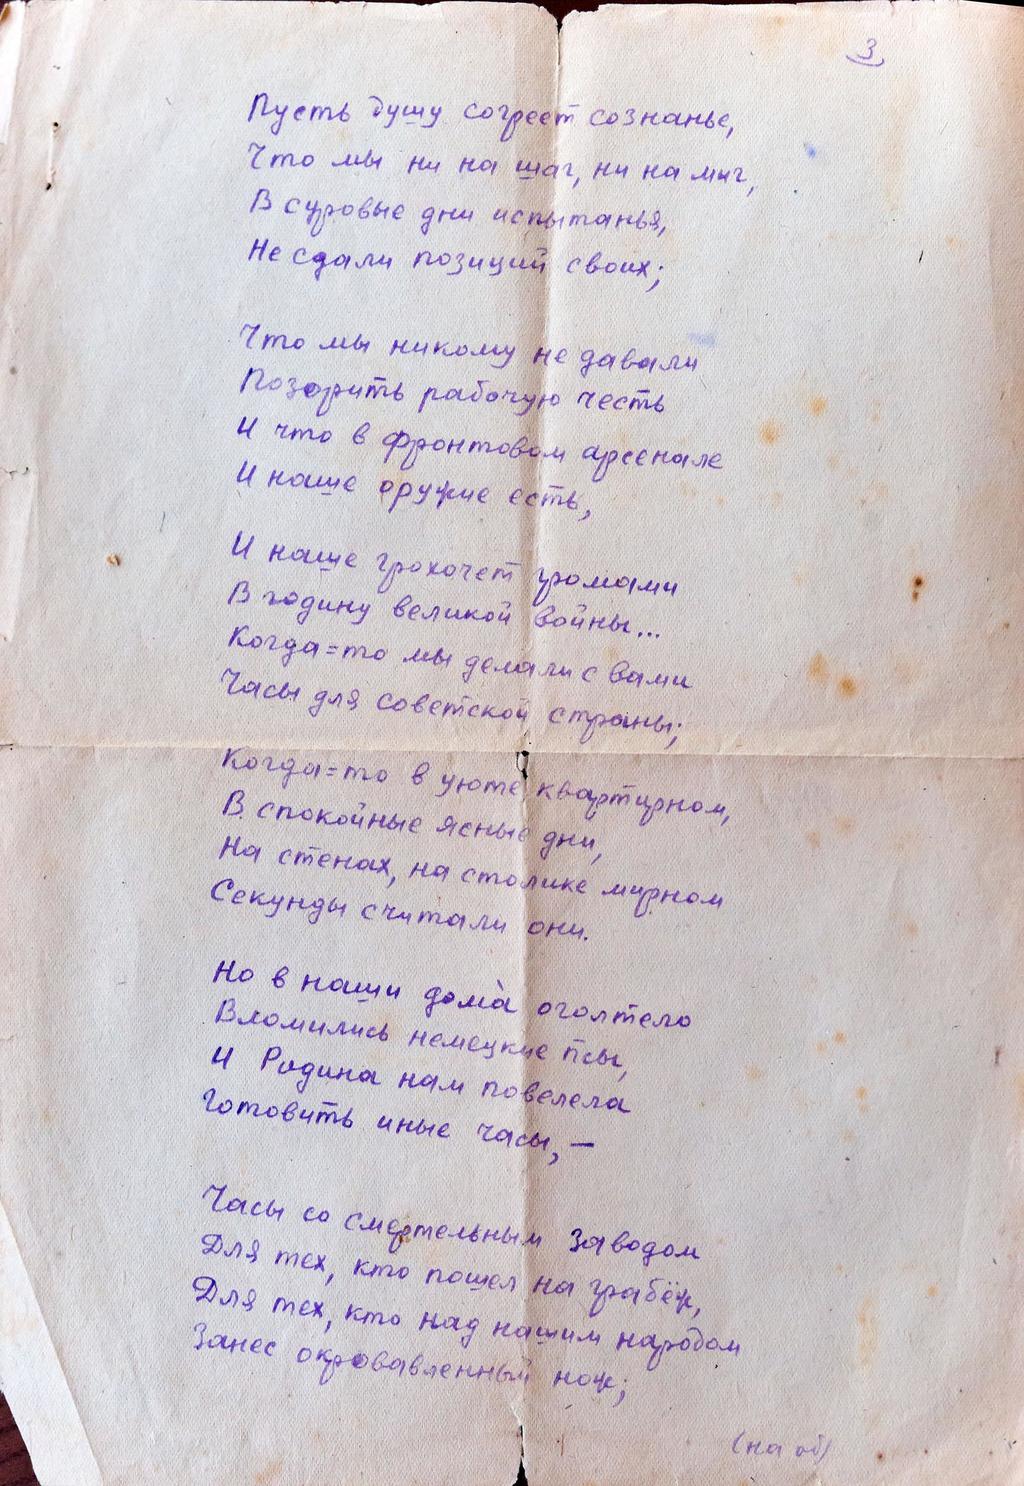 3
Пусть душу согреет сознанье,
Что мы ни на шаг, ни на миг,
В суровые дни испытанья,
Не сдали позиций своих;
Что мы никому не давали
Позорить рабочую честь
И что в фронтовом арсенале
И наше оружие есть,
И наше грохочет громами
В годину великой войны...
Когда=то мы делали с вами
Часы для советской страны;
Когда=то в уюте квартирном,
В спокойные ясные дни,
На стенах, на столике мирном
Секунды считали они.
Но в наши дома́ оголтело
Вломились немецкие псы,
И Родина нам повелела
Готовить иные часы, —
Часы со смертельным заводом
Для тех, кто пошел на грабёж,
Для тех, кто над нашим народом
Занес окровавленный нож;
(на об)